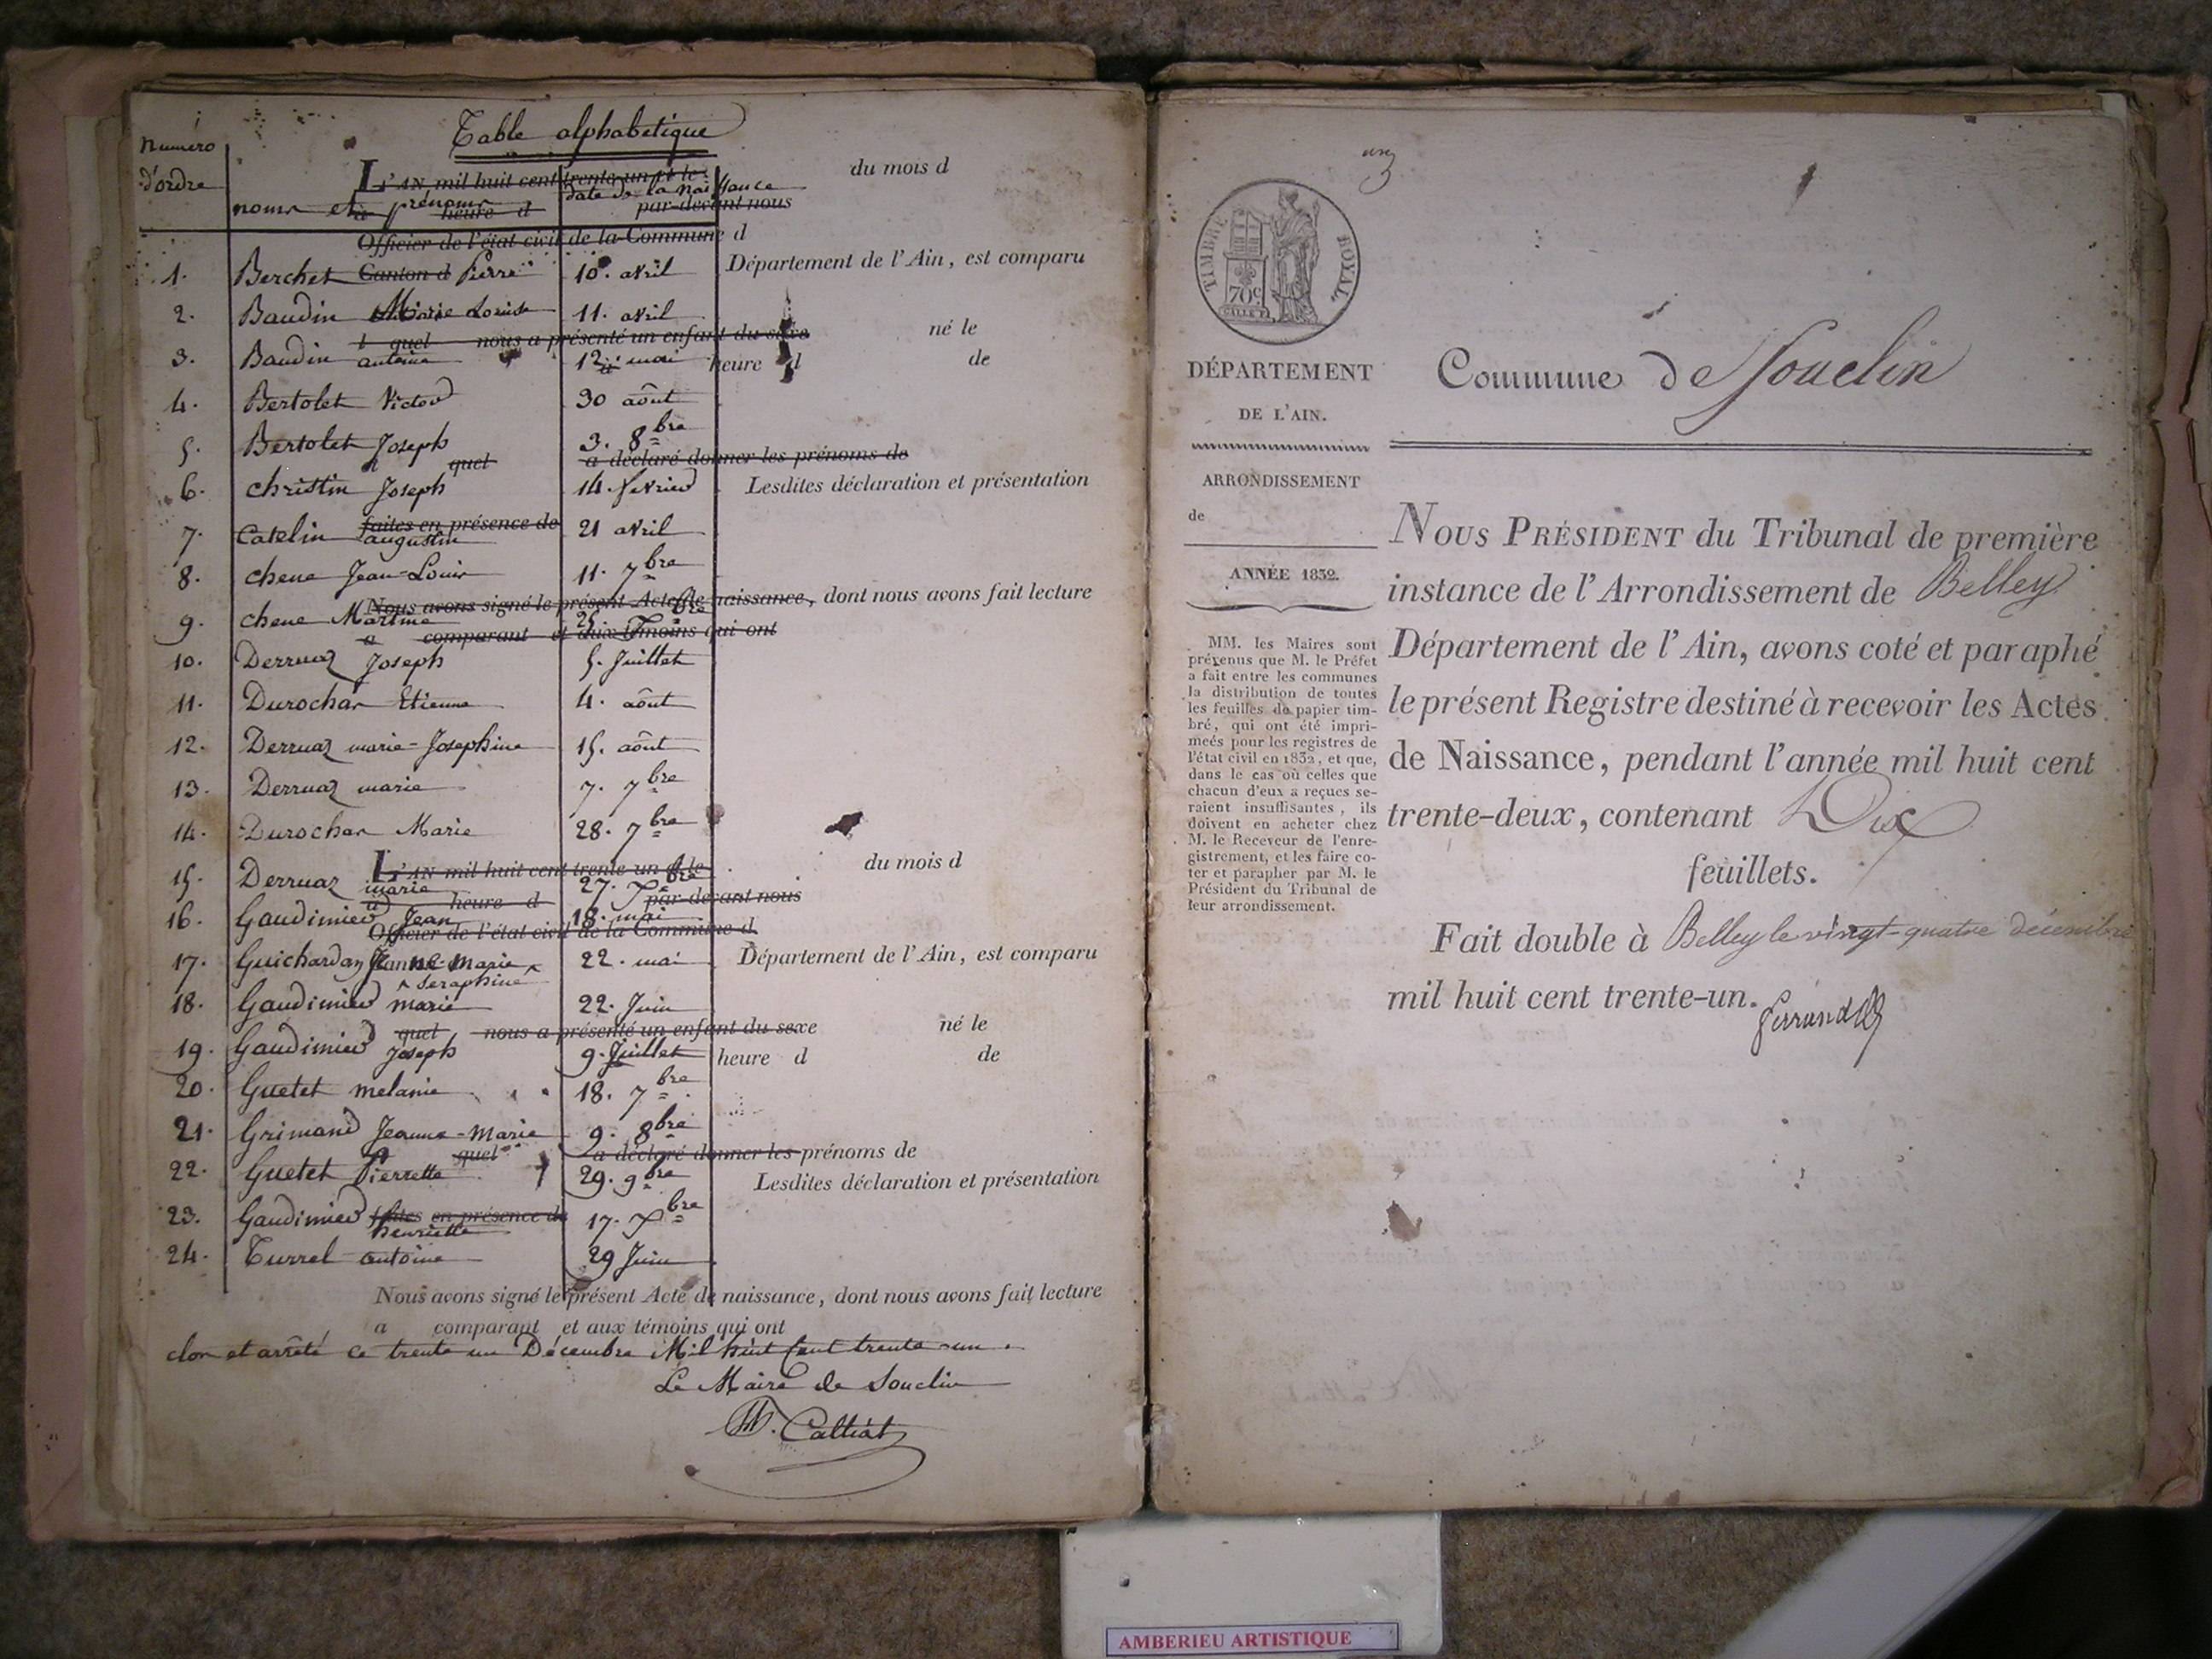 Table alphabetique
Numéro
d'ordre
L'AN mil huit cent trente-un et le
du mois d
noms et prénoms
date de la naissance
à heure d
par-devant nous
Officier de l'état civil de la Commune d
1. Berchet Canton d Pierre 10. avril
Département de l'Ain, est comparu
2. Baudin Marie Louise 11. avril
l quel nous a présenté un enfant du sexe né le
3. Baudin antoine 12 mai
à heure d de
4. Bertolet Victor 30 août
5. Bertolet Joseph 3. 8bre
quel a déclaré donner les prénoms de
6. christin Joseph 14. fevrier
Lesdites déclaration et présentation
faites en présence de
7. Catelin augustin 21 avril
8. chene Jean-Louis 11. 7bre
Nous avons signé le présent Acte de naissance, dont nous avons fait lecture
9. chene Martine 25.
a comparant et aux témoins qui ont
10. Derruaz Joseph 5. Juillet
11. Durochat Etienne 4. août
12. Derruaz marie-Josephine 15. août
13. Derruaz marie 7. 7bre
14. Durochat Marie 28. 7bre
L'AN mil huit cent trente-un et le
du mois d
15. Derruaz marie 27. Xbre
à heure d
par-devant nous
16. Gaudimier Jean 18. mai
Officier de l'état civil de la Commune d
17. Guichardan Jeanne-Marie 22. mai
Département de l'Ain, est comparu
^ Seraphine
18. Gaudimier marie 22. Juin
quel nous a présenté un enfant du sexe né le
19. Gaudimier Joseph 9. Juillet
heure d de
20. Guetet melanie 18. 7bre
21. Grimand Jeanne-Marie 9. 8bre
quel a déclaré donner les prénoms de
22. Guetet Pierrette 29. 9bre
Lesdites déclaration et présentation
faites en présence de
23. Gaudimier henriette 17. Xbre
24. Turrel antoine 29 Juin
Nous avons signé le présent Acte de naissance, dont nous avons fait lecture
a comparant et aux témoins qui ont
clos et arrêté ce trente un Décembre Mil huit Cent trente-un.
Le Maire de Souclin
Calliat
un
TIMBRE ROYAL
70c
DÉPARTEMENT
DE L'AIN.
ARRONDISSEMENT
de
ANNÉE 1832.
MM. les Maires sont
prévenus que M. le Préfet
a fait entre les communes
la distribution de toutes
les feuilles de papier tim-
bré, qui ont été impri-
meés pour les registres de
l'état civil en 1832, et que,
dans le cas où celles que
chacun d'eux a reçues se-
raient insuffisantes, ils
doivent en acheter chez
M. le Receveur de l'enre-
gistrement, et les faire co-
ter et parapher par M. le
Président du Tribunal de
leur arrondissement.
Commune de Souclin
NOUS PRÉSIDENT du Tribunal de première
instance de l'Arrondissement de Belley
Département de l'Ain, avons coté et paraphé
le présent Registre destiné à recevoir les Actes
de Naissance, pendant l'année mil huit cent
trente-deux, contenant Dix
feuillets.
Fait double à Belley le vingt-quatre décembre
mil huit cent trente-un.
AMBERIEU ARTISTIQUE